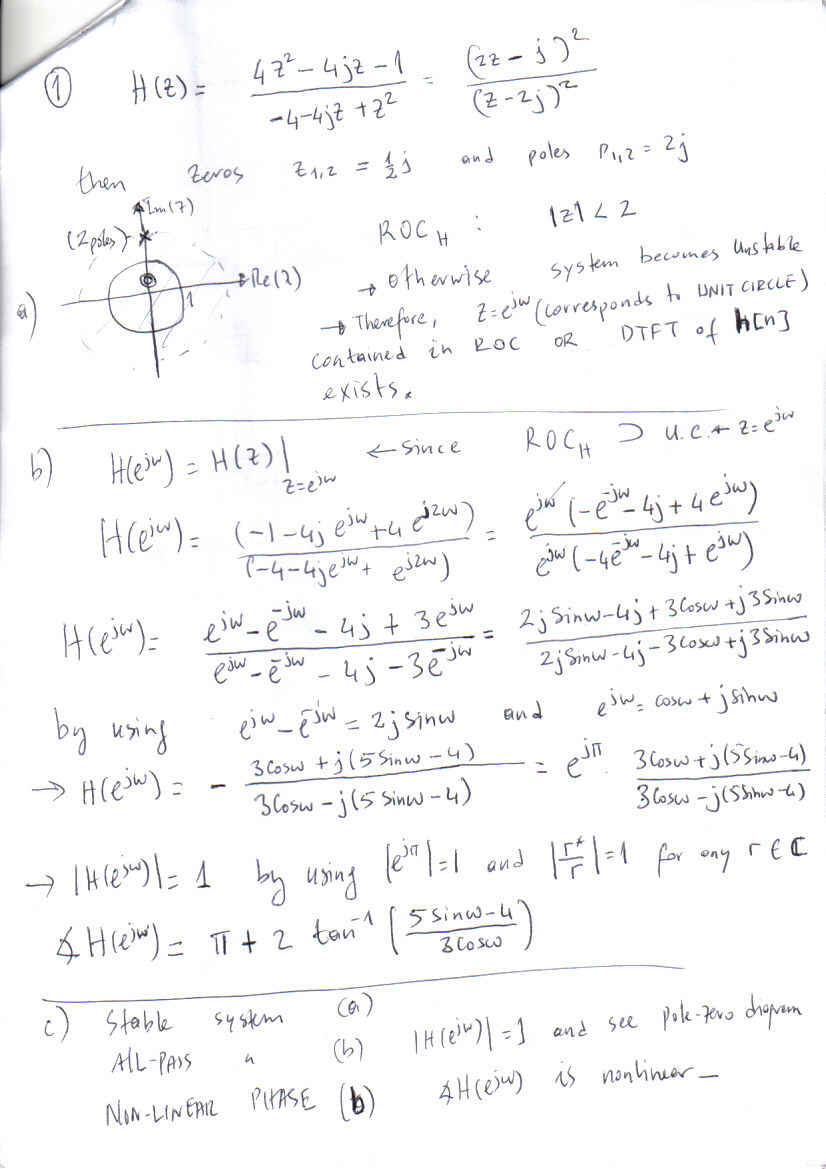 ① H(z) = (4z² - 4jz - 1) / (-4 - 4jz + z²) = (2z - j)² / (z - 2j)²
then zeros z₁,₂ = ½j and poles p₁,₂ = 2j
Im(z)
(2 poles)
Re(z)
1
a)
ROC_H : |z| < 2
→ otherwise system becomes unstable
→ Therefore, z = e^{jw} (corresponds to UNIT CIRCLE)
contained in ROC OR DTFT of h[n]
exists.
b) H(e^{jw}) = H(z)|_{z=e^{jw}} ← since ROC_H ⊃ U.C. ← z = e^{jw}
H(e^{jw}) = (-1 - 4j e^{jw} + 4 e^{j2w}) / (-4 - 4je^{jw} + e^{j2w}) = e^{jw} (-e^{-jw} - 4j + 4e^{jw}) / e^{jw} (-4e^{-jw} - 4j + e^{jw})
H(e^{jw}) = (e^{jw} - e^{-jw} - 4j + 3e^{jw}) / (e^{jw} - e^{-jw} - 4j - 3e^{-jw}) = (2j Sinw - 4j + 3Cosw + j3Sinw) / (2j Sinw - 4j - 3Cosw + j3Sinw)
by using e^{jw} - e^{-jw} = 2j sinw and e^{jw} = cosw + j sinw
→ H(e^{jw}) = - (3Cosw + j(5Sinw - 4)) / (3Cosw - j(5Sinw - 4)) = e^{jπ} · (3Cosw + j(5Sinw - 4)) / (3Cosw - j(5Sinw - 4))
→ |H(e^{jw})| = 1 by using |e^{jπ}| = 1 and |r*/r| = 1 for any r ∈ ℂ
∡H(e^{jw}) = π + 2 tan⁻¹ ((5 sinw - 4) / 3Cosw)
c) Stable system (a)
All-PASS " (b) |H(e^{jw})| = 1 and see pole-zero diagram
NON-LINEAR PHASE (b) ∡H(e^{jw}) is nonlinear -